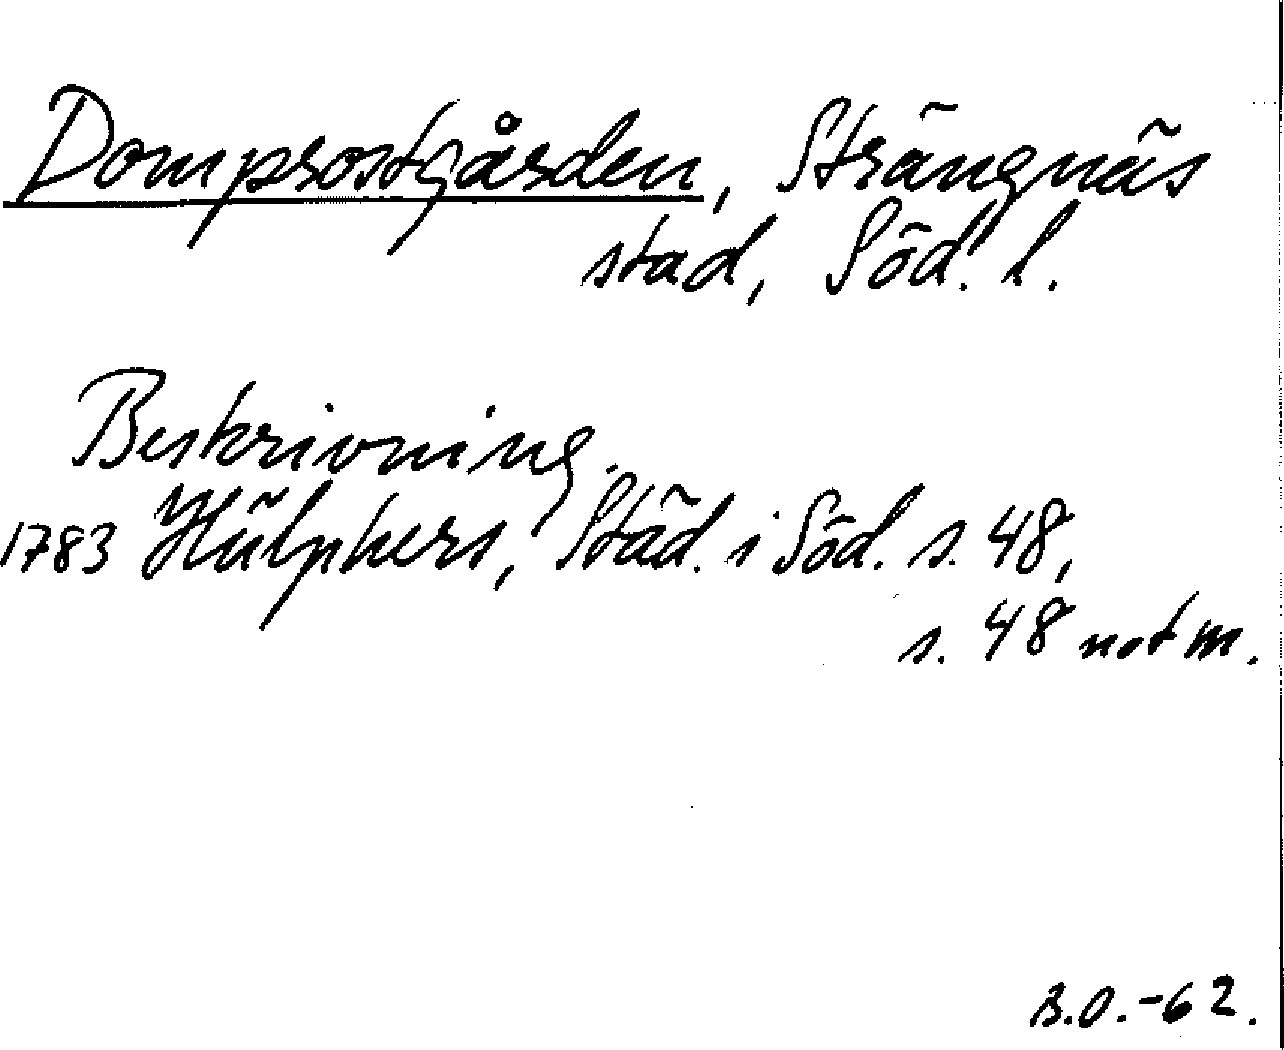 Domprostgården, Strängnäs
stad, Söd. l.
Beskrivning.
1783 Hülphers, Städ. i Söd. s. 48,
s. 48 not m.
B.O.-62.